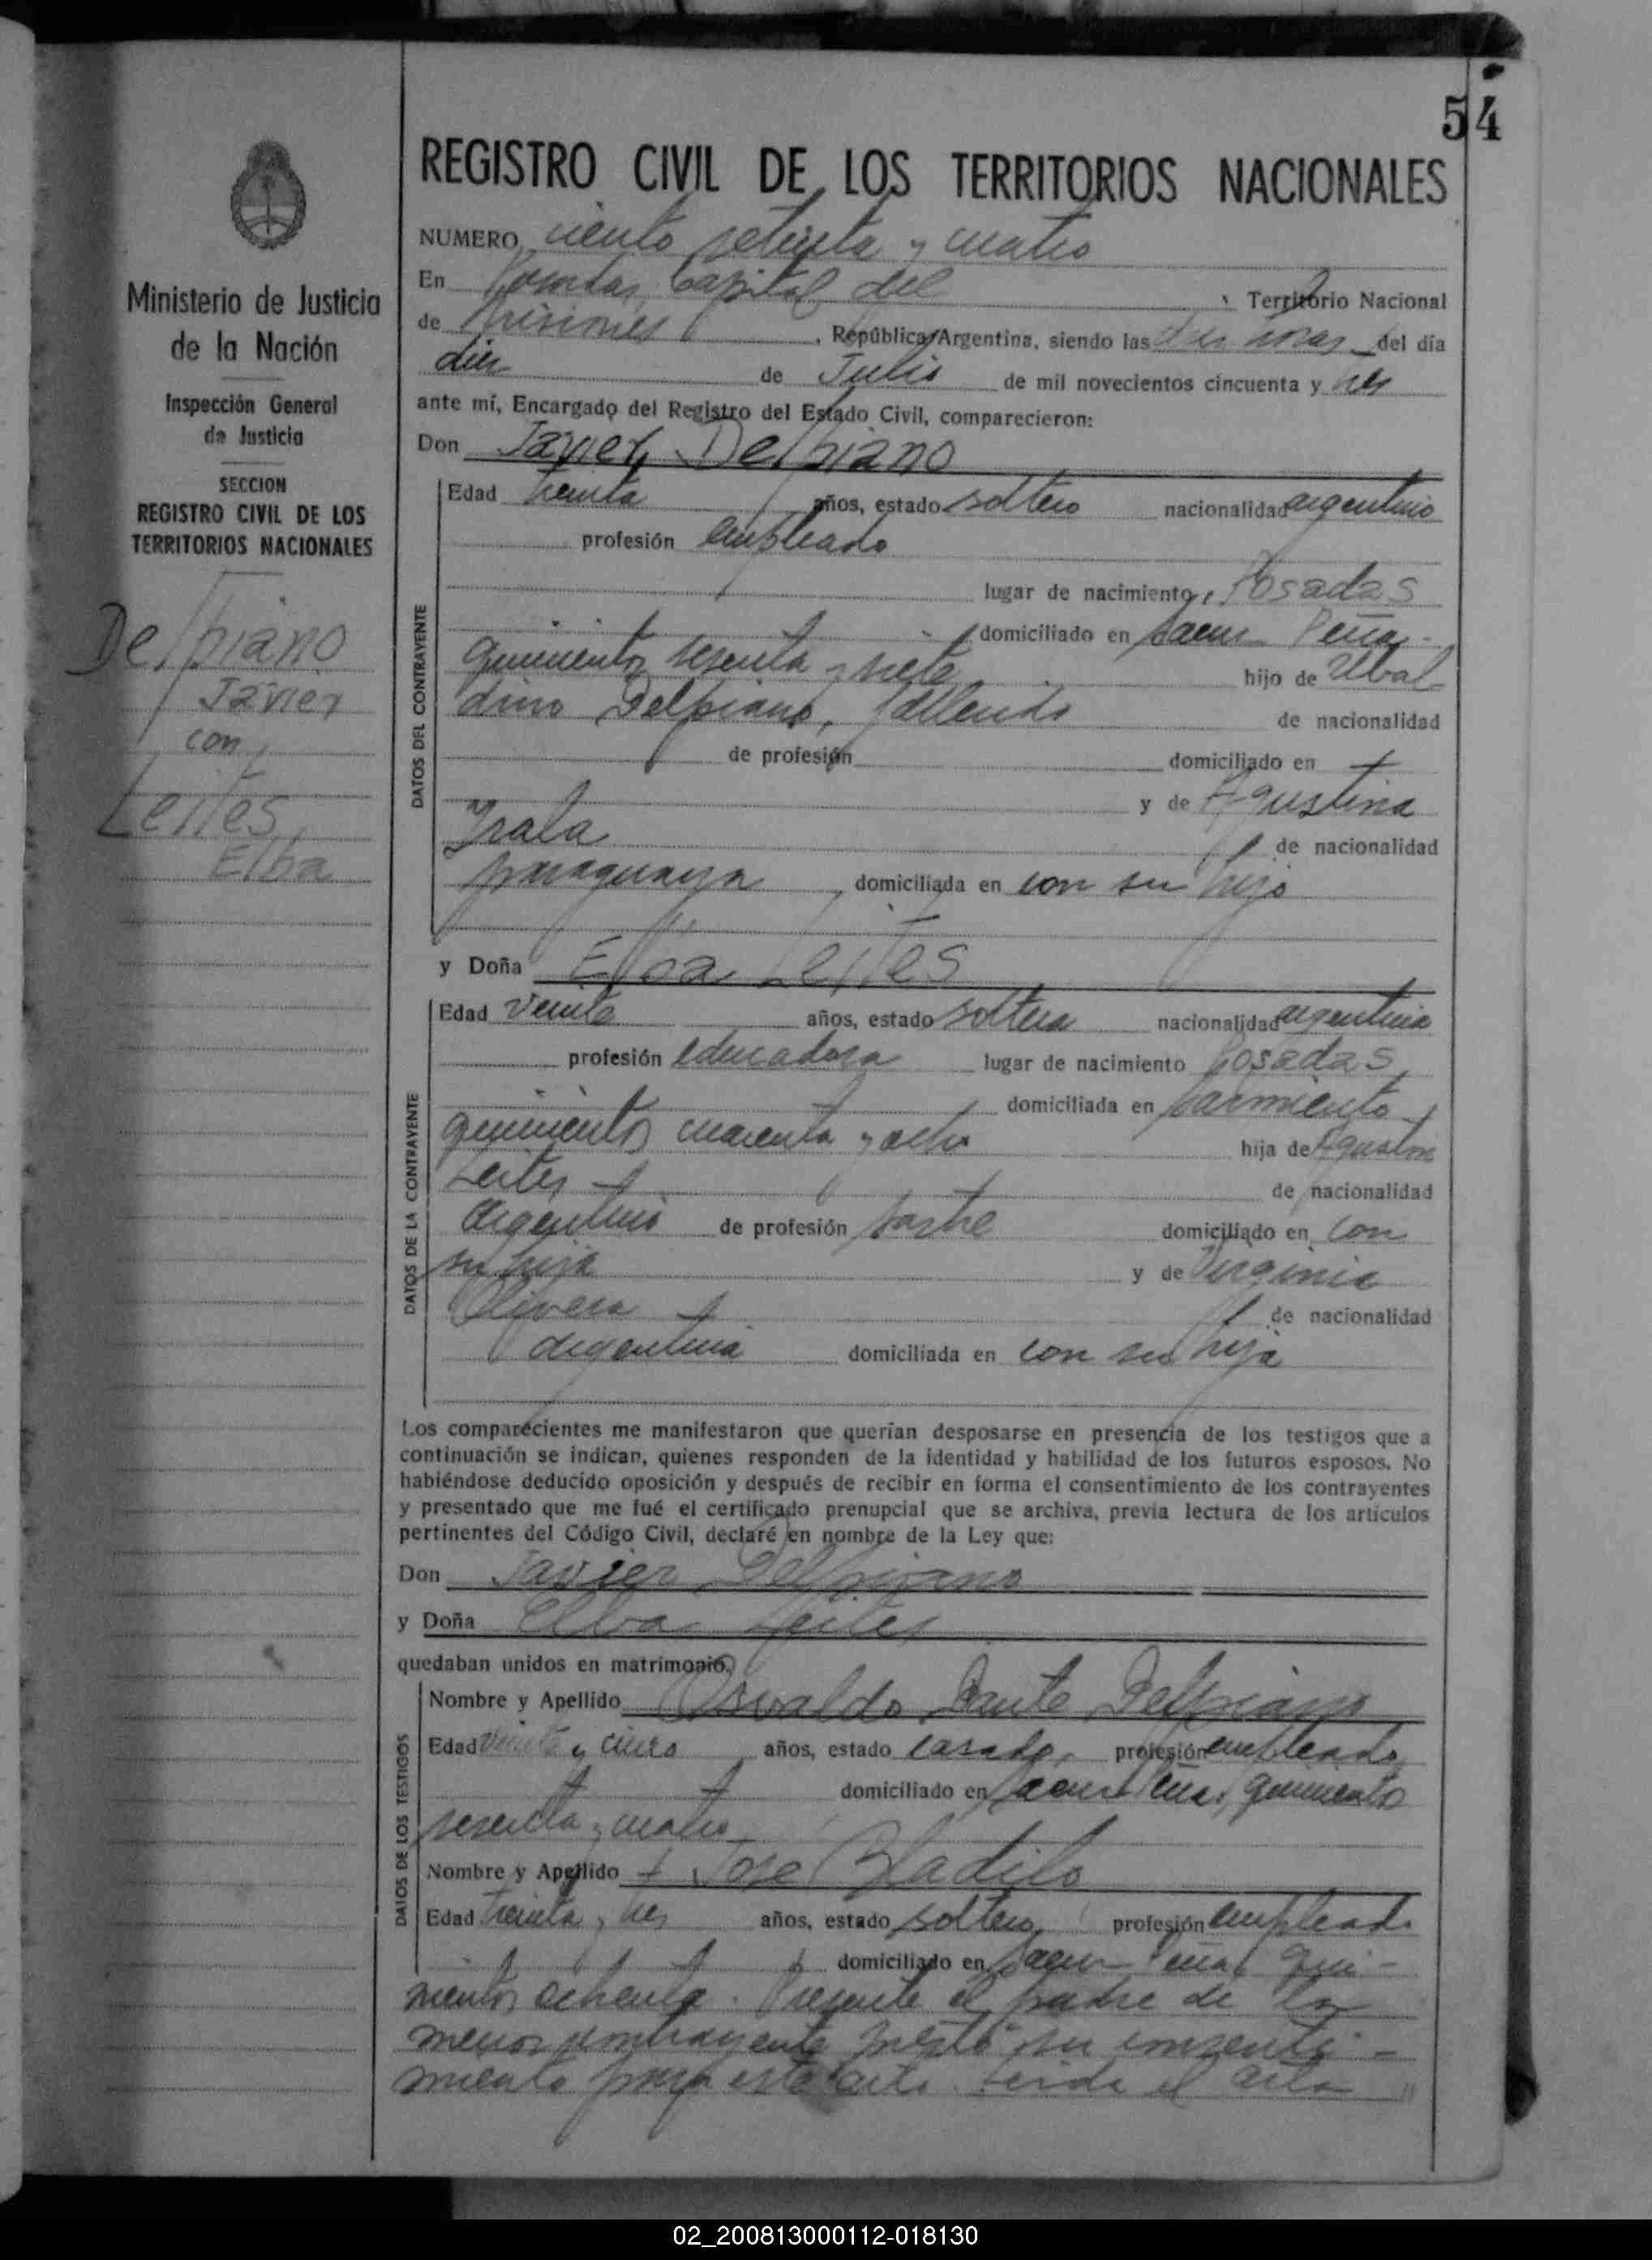 54
REGISTRO CIVIL DE LOS TERRITORIOS NACIONALES
NUMERO ciento setenta y cuatro
En Posadas, Capital del , Territorio Nacional
de Misiones , República Argentina, siendo las diez horas del día
diez de Julio de mil novecientos cincuenta y tres
ante mí, Encargado del Registro del Estado Civil, comparecieron:
Don Javier Delpiano
Ministerio de Justicia
de la Nación
Inspección General
de Justicia
SECCION
REGISTRO CIVIL DE LOS
TERRITORIOS NACIONALES
Delpiano
Javier
con
Leites
Elba
DATOS DEL CONTRAYENTE
Edad treinta años, estado soltero nacionalidad argentino
profesión empleado
lugar de nacimiento, Posadas
domiciliado en Saenz Peña
quinientos sesenta y siete hijo de Ubal-
dino Delpiano, fallecido de nacionalidad
de profesión domiciliado en
y de Agustina
Irala de nacionalidad
paraguaya domiciliada en con su hijo
y Doña Elba Leites
DATOS DE LA CONTRAYENTE
Edad veinte años, estado soltera nacionalidad argentina
profesión educadora lugar de nacimiento Posadas
domiciliada en Sarmiento
quinientos cuarenta y ocho hija de Agustin
Leites de nacionalidad
argentino de profesión sastre domiciliado en con
su hija y de Virginia
Olivera de nacionalidad
argentina domiciliada en con su hija
Los comparecientes me manifestaron que querían desposarse en presencia de los testigos que a
continuación se indican, quienes responden de la identidad y habilidad de los futuros esposos. No
habiéndose deducido oposición y después de recibir en forma el consentimiento de los contrayentes
y presentado que me fué el certificado prenupcial que se archiva, previa lectura de los artículos
pertinentes del Código Civil, declaré en nombre de la Ley que:
Don Javier Delpiano
y Doña Elba Leites
quedaban unidos en matrimonio.
DATOS DE LOS TESTIGOS
Nombre y Apellido Osvaldo Dante Delpiano
Edad veinte y cinco años, estado casado, profesión empleado
domiciliado en Saenz Peña, quinientos
sesenta y cuatro
Nombre y Apellido Jose Bladilo
Edad treinta y tres años, estado soltero profesión empleado
domiciliado en Saenz Peña qui-
nientos ochenta. Presente el padre de la
menor contrayente prestó su consenti-
miento para este acto. Leida el acta
02_200813000112-018130